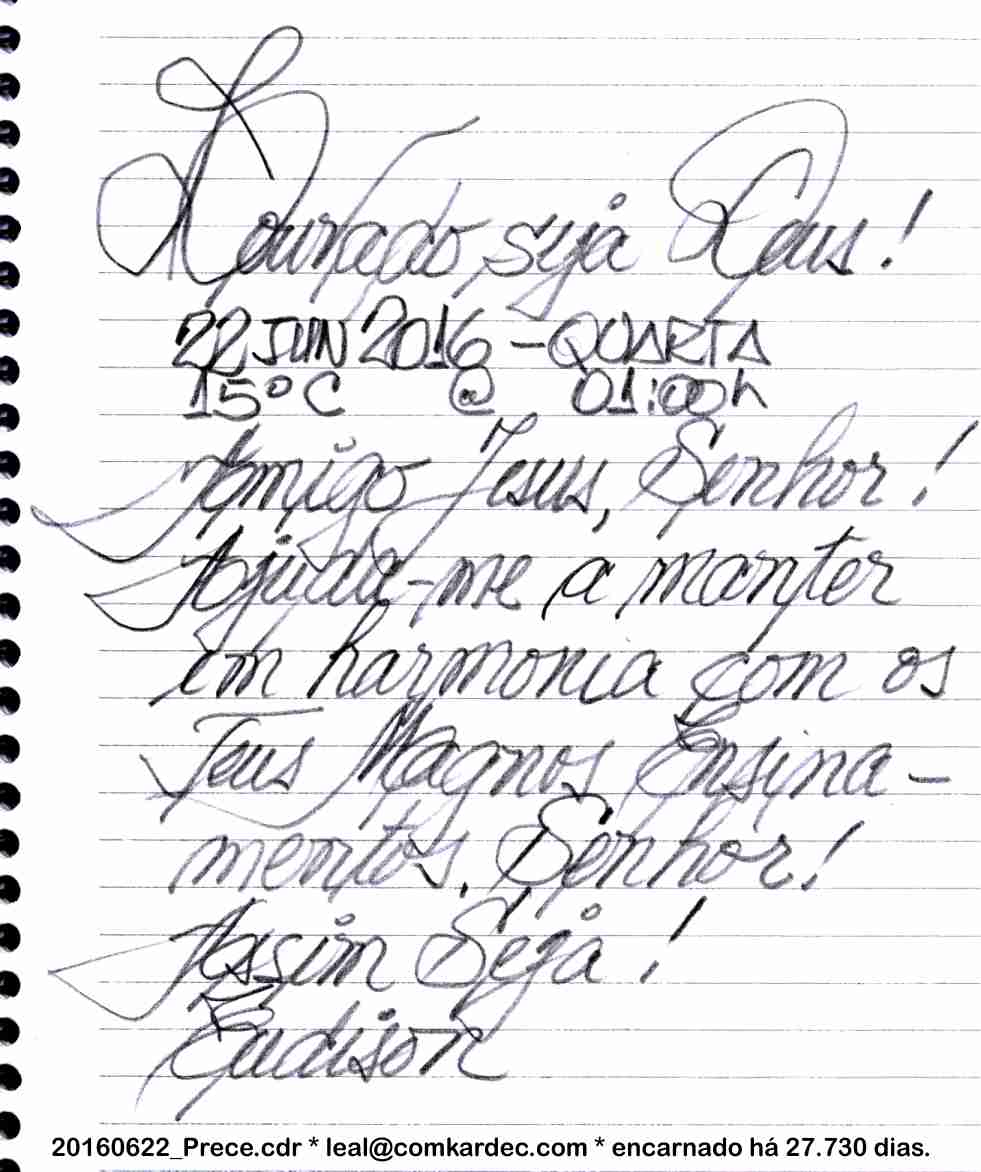 Louvado seja Deus!
22 JUN 2016 - QUARTA
15°C @ 01:00h
Amigo Jesus, Senhor!
Ajuda-me a manter
em harmonia com os
Teus Magnos Ensina-
mentos, Senhor!
Assim Seja!
Eudison
20160622_Prece.cdr * leal@comkardec.com * encarnado há 27.730 dias.